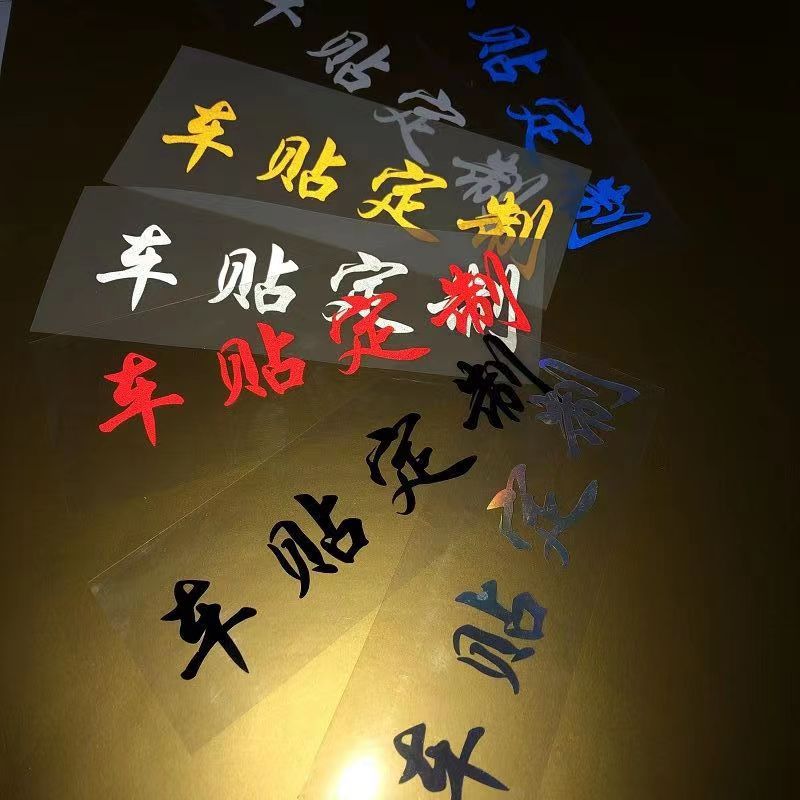 贴定制
车贴定制
车贴定制
车贴定制
车贴定制
车贴定制
车贴定制